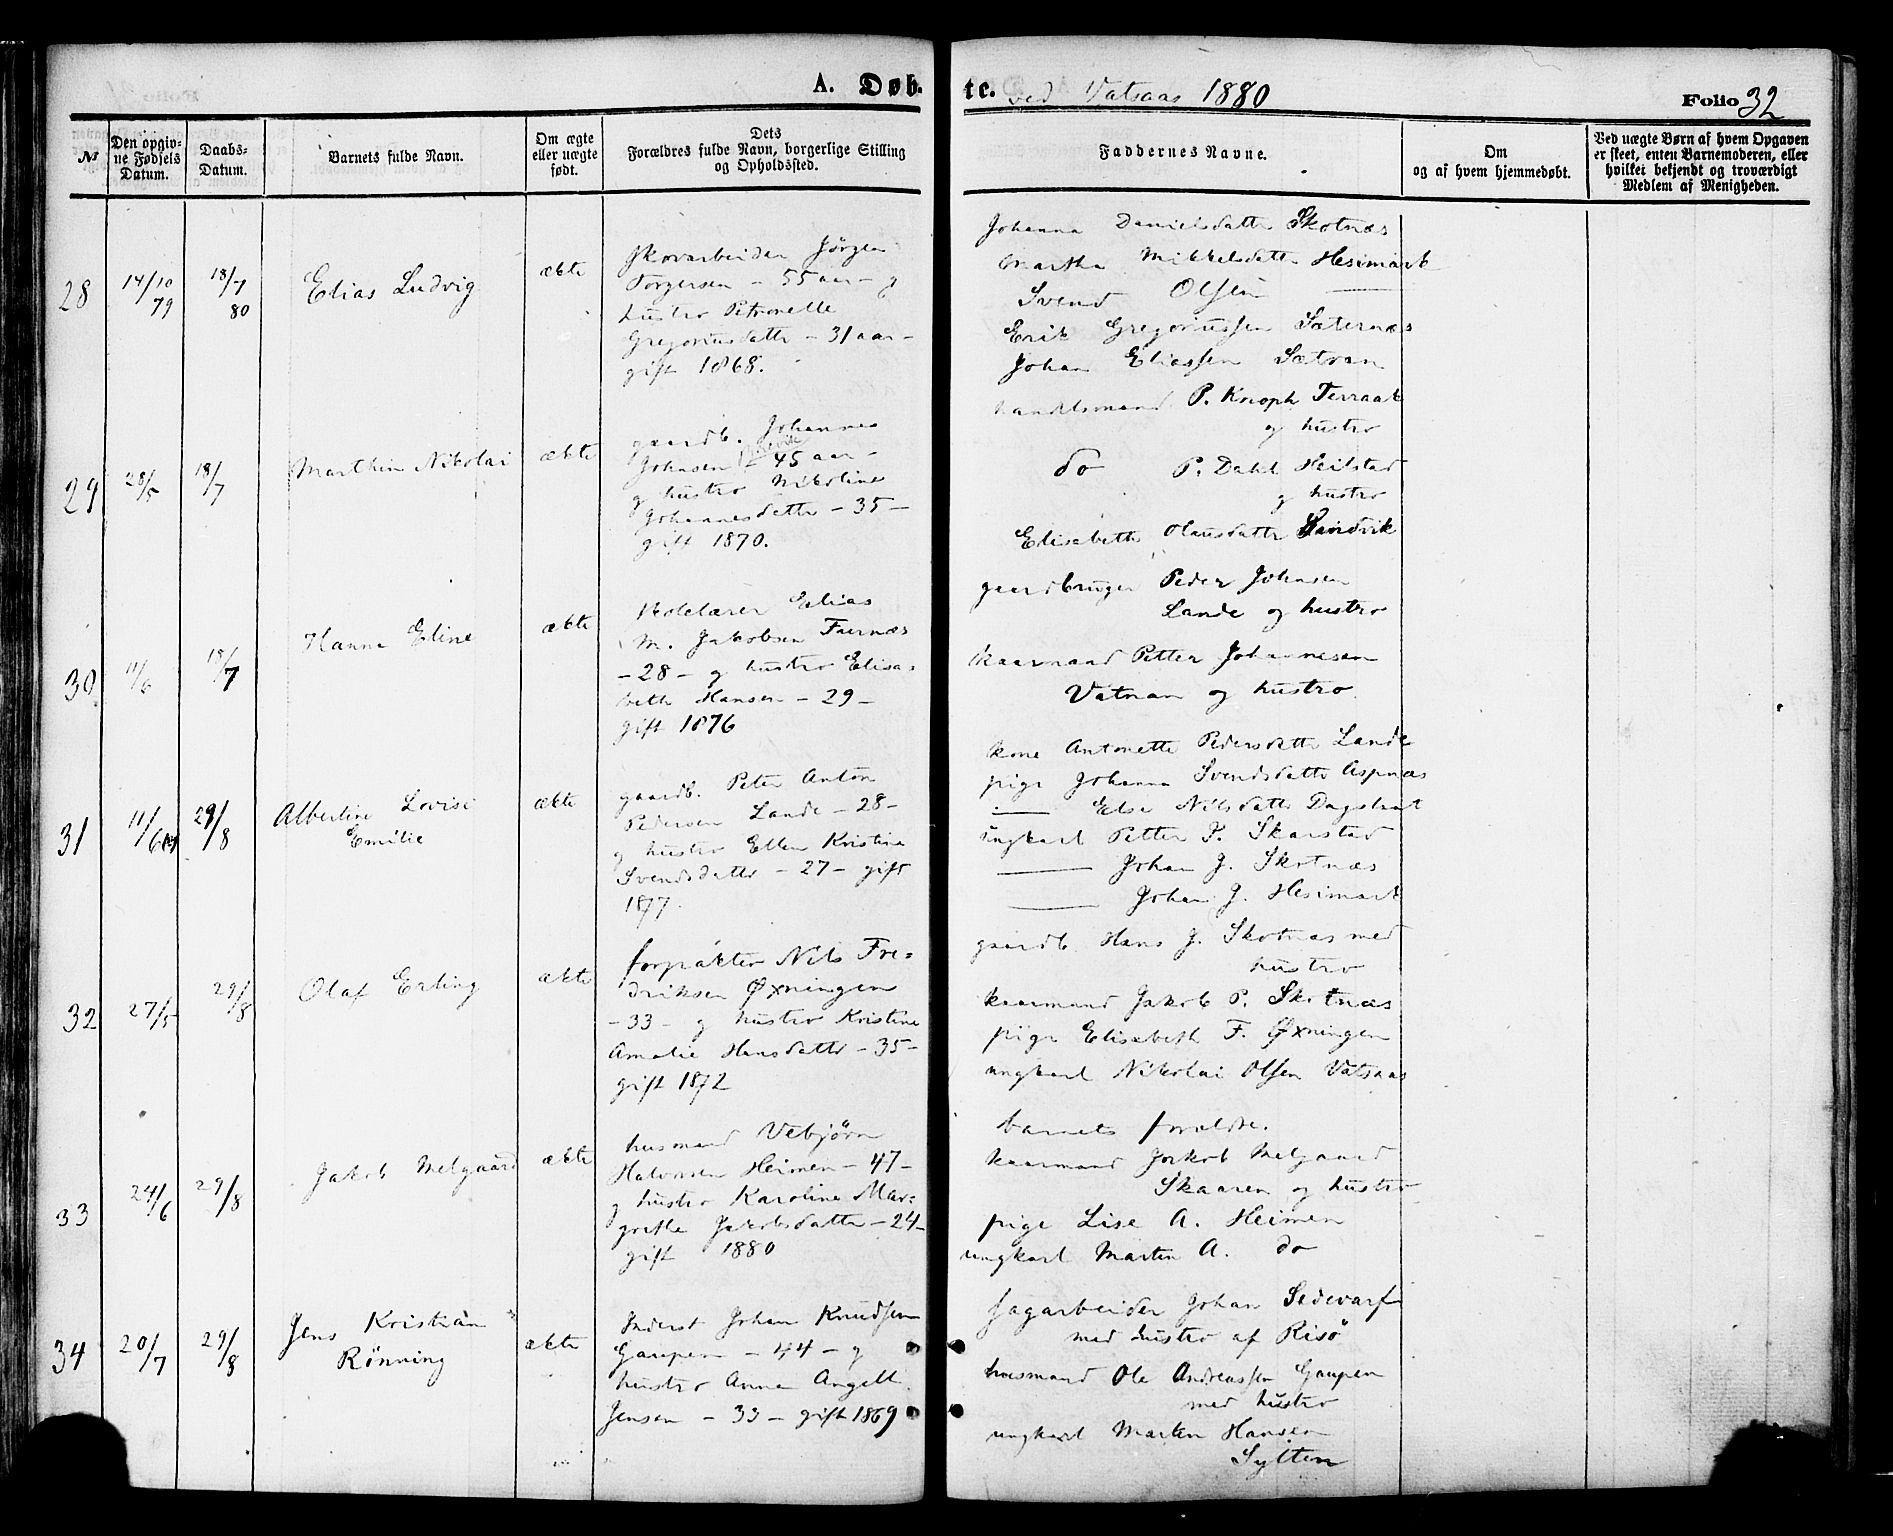 A. Døb-
te. ved Vatsaas 1880
Folio 32
№
Den opgiv-
ne Fødsels
Datum.
Daabs-
Datum.
Barnets fulde Navn.
Om ægte
eller uægte
født.
Dets
Forældres fulde Navn, borgerlige Stilling
og Opholdssted.
Faddernes Navne.
Om
og af hvem hjemmedøbt.
Ved uægte Børn af hvem Opgaven
er skeet, enten Barnemoderen, eller
hvilket bekjendt og troværdigt
Medlem af Menigheden.
28
14/10 79
18/7 80
Elias Ludvig
ækte
Skovarbeider Jörgen
Torgersen - 55 aar - g
hustro Petronelle
Gregoriusdatter - 31 aar -
gift 1868.
Johanna Danielsdatter Skotnæs
Martha Mikkelsdatter Hesimark
Svend Olsen ——
Erik Gregoriussen Sæternæs
Johan Eliassen Sætran
29
28/5
18/7
Marthin Nikolai
ækte
gaardb. Johannes
Johnsen - 45 aar -
g hustro Nikoline
Johannesdatter - 35 -
gift 1870.
handelsmand P. Knoph Terraak
og hustro
do P. Dahl Heilstad
g hustro
Elisabeth Olausdatter Sandvik
30
11/6
18/7
Hanna Eline
ækte
Skolelærer Elias
M. Jakobsen Furnæs
- 28 - g hustro Elisa-
beth Hansen - 29 -
gift 1876
gaardbruger Peder Johnsen
Lande og hustro
kaarmand Petter Johannesen
Vatnan og hustro.
31
11/6
29/8
Albertine Lovise
Emilie
ækte
gaardb. Peter Anton
Pedersen Lande - 28 -
g hustro Ellen Kristina
Svendsdatter - 27 - gift
1877.
kone Antonette Pedersdatter Lande
pige Johanna Svendsdatter Aspnæs
—— Else Nilsdatter
ungkarl Petter P. Skarstad
—— Johan J. Skotnæs
—— Johan J. Hesimark
32
27/5
29/8
Olaf Erling
ækte
forpakter Nils Fre-
driksen Øxningen
- 33 - g hustro Kristine
Amalie Hansdatter - 35 -
gift 1872
gaardb Hans J. Skotnæs med
hustro
kaarmand Jakob P. Skotnæs
pige Elisabeth F. Øxningen
ungkarl Nikolai Olsen Vatsaas
33
24/6
29/8
Jakob Melgaard
ækte
husmand Vebjørn
Halvorsen Heimen - 47 -
g hustro Karoline Mar-
grethe Jakobsdatter - 24 -
gift 1880
barnets forældre.
kaarmand Jakob Melgaard
Skaaren og hustro
pige Lise A. Heimen
ungkarl Martin A. do
34
20/7
29/8
Jens Kristian
Rönning
ækte
Inderst Johan Knudsen
Gaupen - 44 - g
hustro Anna Angell
Jensen - 33 - gift 1869
Sagarbeider Johan
med hustro af Risö
husmand Ole Andreassen Gaupen
med hustro
ungkarl Martin Hansen
Sylten